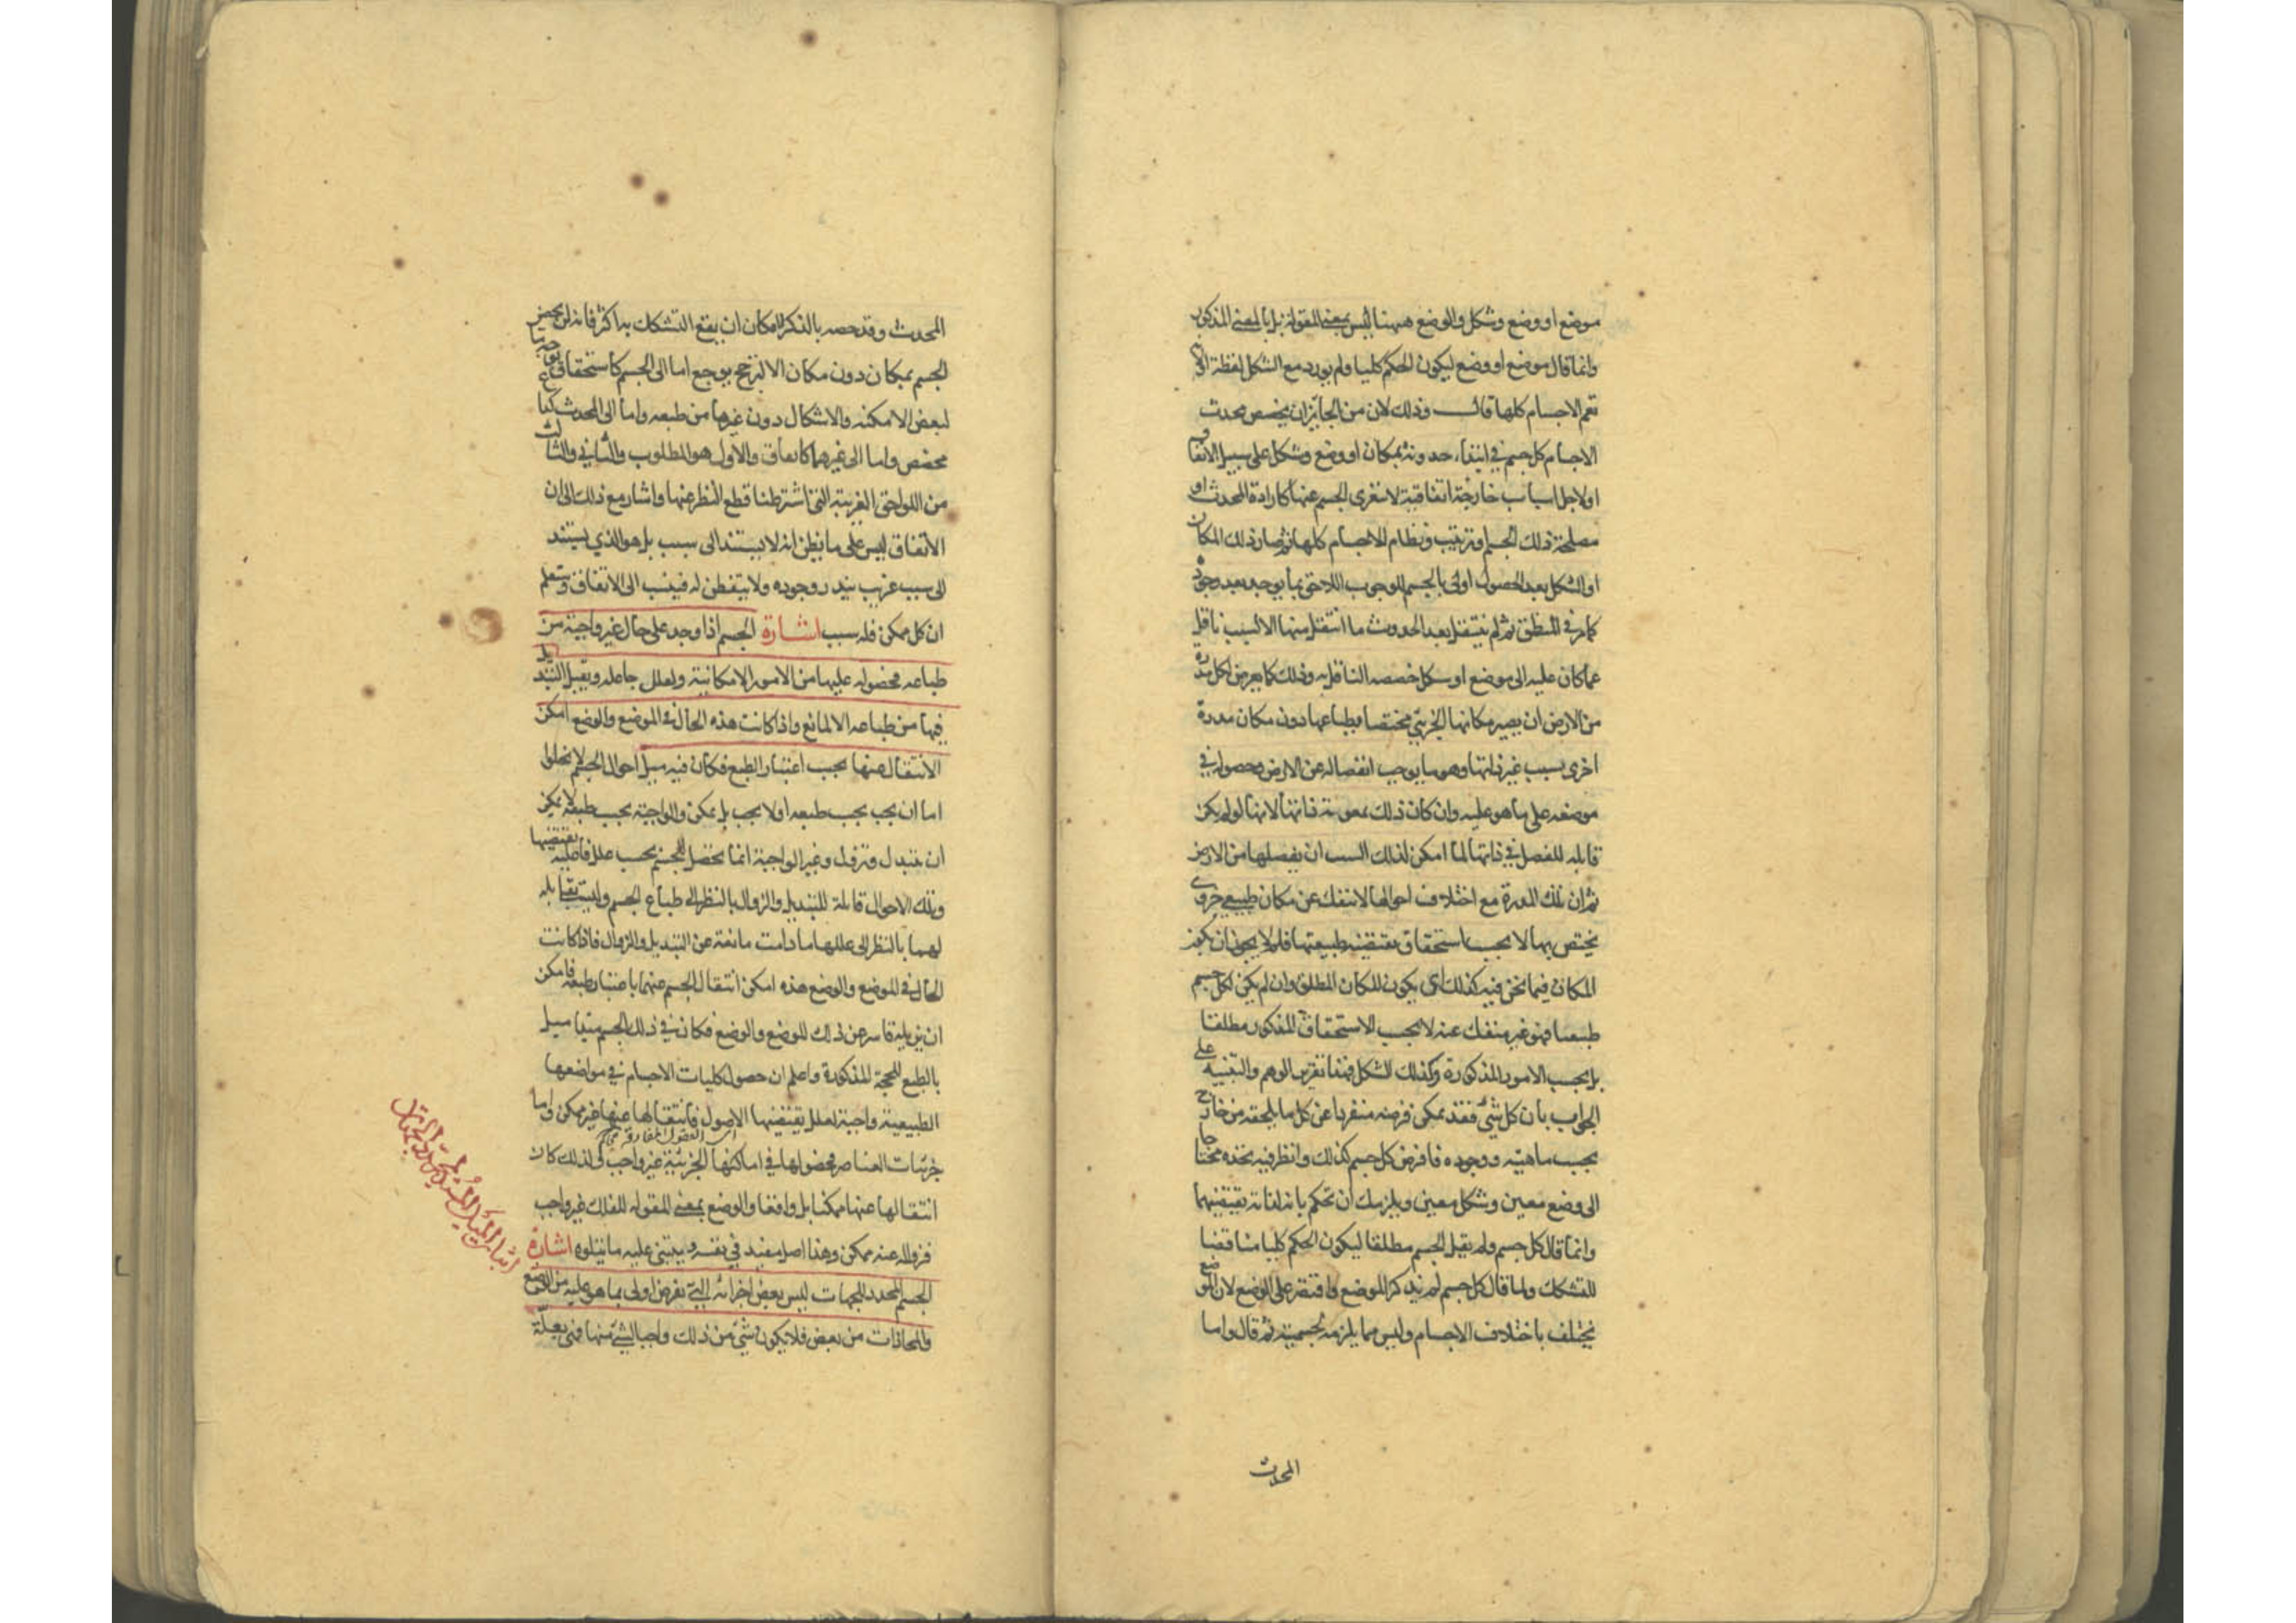 موضع او وضع وشكل والوضع ههنا ليس بمعنى المقولة بل بالمعنى المذكور
وانما قال موضع او وضع ليكون الحكم كليا ولم يورد مع الشكل لفظة او لانها
تعم الاجسام كلها قال وذلك لان من الجايز ان يخصص محدث
الاجسام كل جسم في ابتداء حدوثه بمكان او وضع وشكل على سبيل الاتفاق
او لاجل اسباب خارجة اتفاقية لا تعرى الجسم عنها كارادة المحدث او
مصلحة ذلك الجسم او ترتيب ونظام للاجسام كلها ثم صار ذلك المكان
او الشكل بعد الحصول اولى بالجسم للوجوب اللاحق بما يوجد بعد وجوده
كما مر في المنطق ثم لم ينتقل بعد الحدوث ما انتقل منها الا لسبب ناقل
عما كان عليه الى موضع او شكل خصصه الناقل به وذلك كما يعرض لكل مدرة
من الارض ان يصير مكانها الجزئي مختصا بطباعها دون مكان مدرة
اخرى بسبب غير ذاتها وهو ما يوجب انفصاله عن الارض وحصوله في
موضعه على ما هو عليه وان كان ذلك بمعونة ذاتها لانها لو لم يكن
قابلة للفصل في ذاتها لما امكن لذلك السبب ان يفصلها من الارض
ثم ان تلك المدرة مع اختلاف احوالها لا تنفك عن مكان طبيعي جزوى
يختص بها لا بحسب استحقاق يقتضيه طبيعتها فلم لا يجوز ان يكون
المكان فيما نحن فيه كذلك اى يكون المكان المطلق وان لم يكن لكل جسم
طبيعيا فهو غير منفك عنه لا بحسب الاستحقاق المذكور مطلقا
بل بحسب الامور المذكورة وكذلك الشكل فهذا تقرير الوهم والتنبيه على
الجواب بان كل شئ فقد يمكن فرضه منفردا عن كل ما يلحقه من خارج
بحسب ماهيته ووجوده فافرض كل جسم كذلك وانظر فيه تجده محتاجا
الى وضع معين وشكل معين ويلزمك ان تحكم بانه لذاته يقتضيهما
وانما قال كل جسم ولم يقل الجسم مطلقا ليكون الحكم كليا مناقضا
للتشكك ولما قال كل جسم لم يذكر الموضع واقتصر على الوضع لان الموضع
يختلف باختلاف الاجسام وليس مما يلزمه لجسميته ثم قال واما
المحدث
المحدث وقد خصه بالذكر لامكان ان يقع التشكك به اكثر فانه لن يخص
الجسم بمكان دون مكان الا لترجح يوجع اما الى الجسم كاستحقاق
لبعض الامكنة والاشكال دون غيرها من طبعه واما الى المحدث
مخصص واما الى غيرهما كاتفاق والاول هو المطلوب والثاني والثالث
من اللواحق الغريبة التى اشترطنا قطع النظر عنها واشار مع ذلك الى ان
الاتفاق ليس على ما يظن انه لا يستند الى سبب بل هو الذي يستند
الى سبب غريب يندر وجوده ولا يتفطن له فينسب الى الاتفاق وستعلم
ان كل ممكن فله سبب اشارة الجسم اذا وجد على حال غير واجبة من
طباعه فحصوله عليها من الامور الامكانية ولعلل جاعله ويقبل التبديل
فيها من طباعه الا لمانع واذا كانت هذه الحال فى الموضع والوضع امكن
الانتقال عنها بحسب اعتبار الطبع فكان فيه ميل احوال الجسم لا يخلوا
اما ان يجب بحسب طبعه او لا يجب بل يمكن والواجبة بحسب طبعه لا يمكن
ان يتبدل وتزول وغير الواجبة انما تحصل للجسم بحسب علل فاعلية تقتضيها
وتلك الاحوال قابلة للتبديل والزوال بالنظر الى طباع الجسم وليست بقابلة
لهما بالنظر الى عللها ما دامت مانعة عن التبديل والزوال فاذا كانت
الحال فى الموضع والوضع هذه امكن انتقال الجسم عنهما باعتبار طبعه فامكن
ان يزيله قاسر عن ذلك الموضع والوضع فكان في ذلك الجسم ميل
بالطبع للحجة المذكورة واعلم ان حصول كليات الاجسام في مواضعها
الطبيعية واجبة لعلل يقتضيها الاصول فانتقالها عنها غير ممكن واما
جزئيات العناصر فحصولها في اماكنها الجزئية غير واجب ولذلك كان
انتقالها عنها ممكنا بل واقعا والوضع بمعنى المقولة للفلك غير واجب
فزواله عنه ممكن وهذا اصل مفيد في نفسه ويبتنى عليه ما يتلوه اشارة
الجسم المحدد للجهات ليس بعض اجزائه التي تفرض اولى بما هو عليه من الوضع
والمحاذات من بعض فلا يكون شئ من ذلك واجبا لشئ منها فهى بعلة